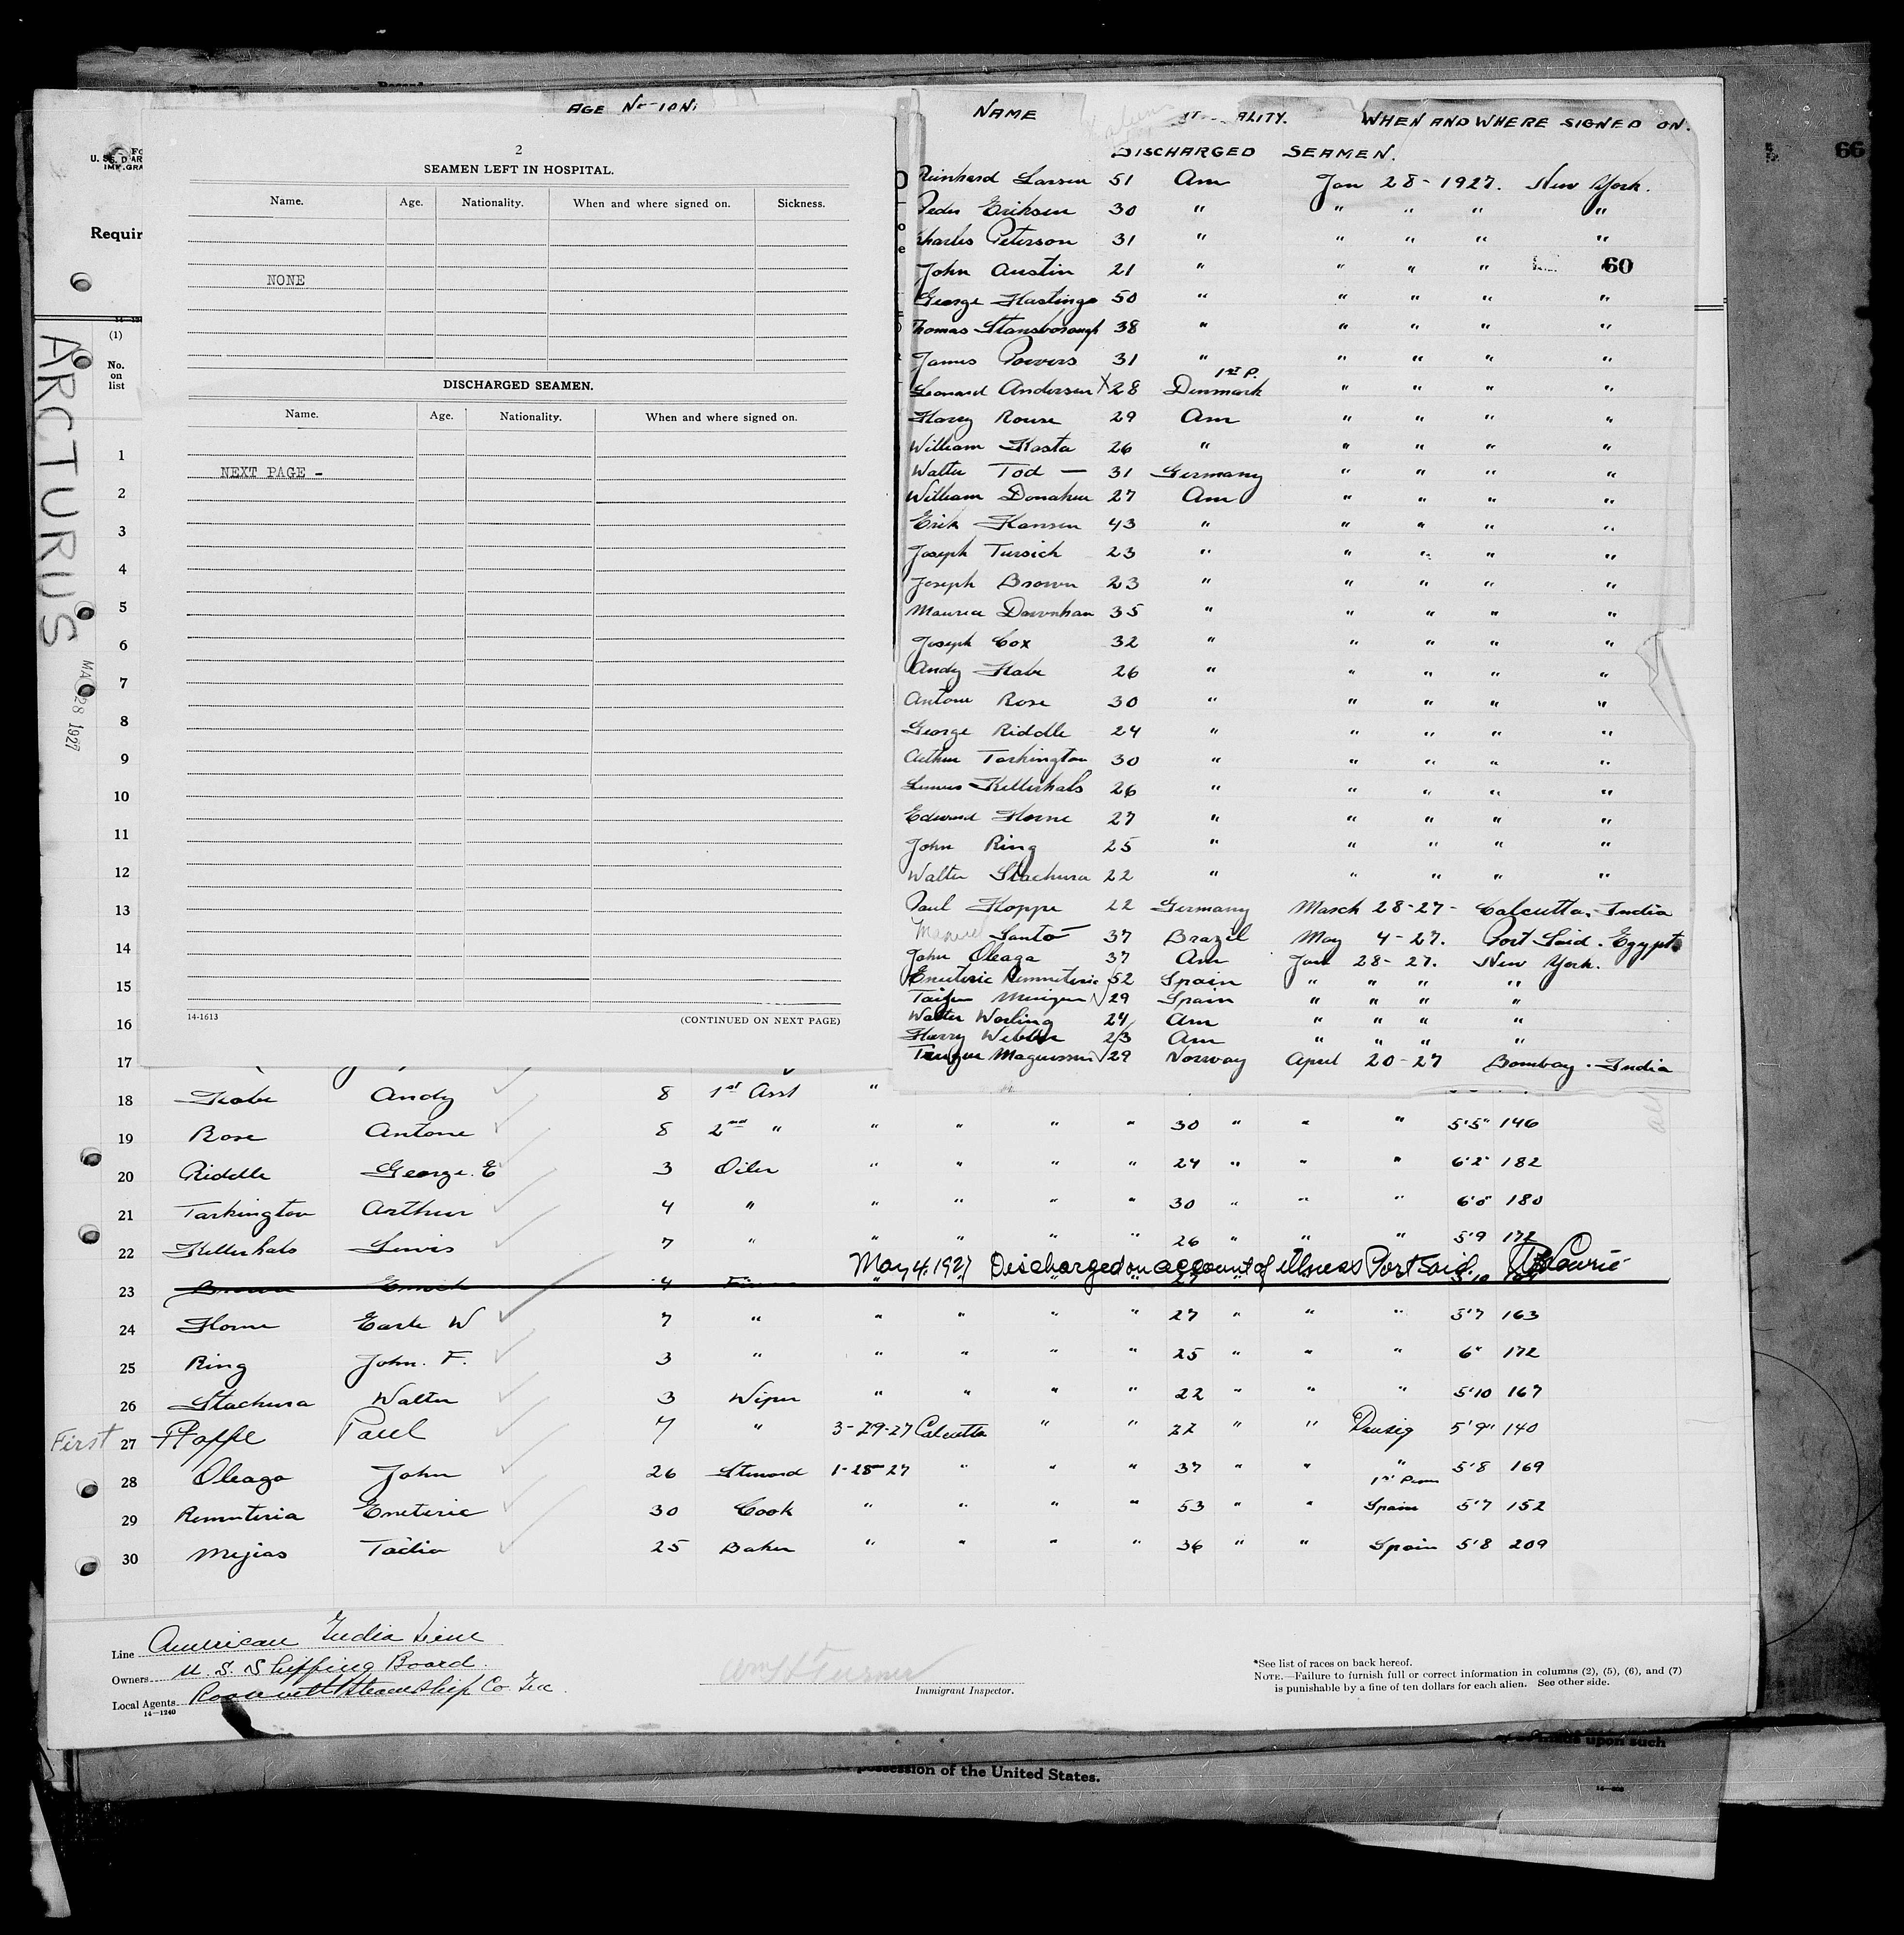 AGE
2
SEAMEN LEFT IN HOSPITAL.
Name. Age. Nationality. When and where signed on. Sickness.
NONE
DISCHARGED SEAMEN.
Name. Age. Nationality. When and where signed on.
NEXT PAGE -
14-1613 (CONTINUED ON NEXT PAGE)
NAME ALITY. WHEN AND WHERE SIGNED ON.
DISCHARGED SEAMEN.
Reinhard Larsen 51 Am Jan 28-1927. New York.
Peder Eriksen 30 " " " " "
Charles Peterson 31 " " " " "
John Austin 21 " " " " "
60
George Hastings 50 " " " " "
Thomas Stansborough 38 " " " " "
James Powers 31 " " " " "
1st P.
Leonard Andersen X 28 Denmark " " " "
Harry Rouse 29 Am " " " "
William Kosta 26 " " " " "
Walter Tod — 31 Germany " " " "
William Donahue 27 Am " " " "
Erik Hansen 43 " " " " "
Joseph Tursich 23 " " " " "
Joseph Brown 23 " " " " "
Maurice Downhan 35 " " " " "
Joseph Cox 32 " " " " "
Andy Habe 26 " " " " "
Antone Rose 30 " " " " "
George Riddle 24 " " " " "
Arthur Tarkington 30 " " " " "
Kellerhals 26 " " " " "
Edward Horne 27 " " " " "
John Ring 25 " " " " "
Walter Stachura 22 " " " " "
Paul Hoppe 22 Germany March 28-27- Calcutta, India
Manuel Santo 37 Brazil May 4-27. Port Said. Egypt
John Oleaga 37 Am Jan 28-27. New York.
52 Spain " " " "
29 Spain " " " "
Walter Worling 24 Am " " " "
Harry Webber 23 Am " " " "
Magnussen 29 Norway April 20-27 Bombay. India
66
Requir
(1)
No.
on
list
ARCTURUS
28 1927
1
2
3
4
5
6
7
8
9
10
11
12
13
14
15
16
17
18 Habe Andy 8 1st Asst "
19 Rose Antone 8 2nd " " " " " 30 " " " 5'5" 146
20 Riddle George. E 3 Oiler " " " " 24 " " " 6'2" 182
21 Tarkington Arthur 4 " " " " " 30 " " " 6'0" 180
22 Kellerhals Lewis 7 " " " " " 26 " " " 5'9 172
May 4, 1927 Discharged on account of illness Port Said.
23 Brown 4
24 Horne Earle W 7 " " " " " 27 " " " 5'7 163
25 Ring John. F. 3 " " " " " 25 " " " 6" 172
26 Stachura Walter 3 Wiper " " " " 22 " " " 5'10 167
First 27 Hoppe Paul 7 " 3-29-27 Calcutta " " 22 " " Danzig 5'9" 140
28 Oleaga John 26 Steward 1-28-27 " " " 37 " " " 5'8 169
29 Rementeria Emeterie 30 Cook " " " " 53 " " Spain 5'7 152
30 Mejias 25 Baker " " " " 36 " " Spain 5'8 209
Line American India Line
Owners U. S. Shipping Board.
Local Agents Roosevelt Steamship Co Inc.
14-1240
Turner
Immigrant Inspector.
*See list of races on back hereof.
NOTE.—Failure to furnish full or correct information in columns (2), (5), (6), and (7)
is punishable by a fine of ten dollars for each alien. See other side.
made upon such
possession of the United States.